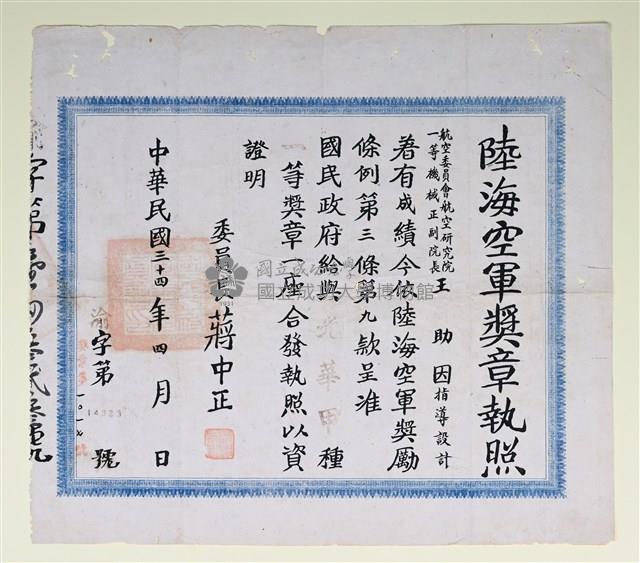 陸海空軍獎章執照
航空委員會航空研究院
一等機械正副院長
王助因指導設計
著有成績今依陸海空軍獎勵
條例第三條第九款呈准
國民政府給與光華甲種
一等獎章一座合發執照以資
證明
委員長蔣中正
中華民國三十四年四月 日
渝字第 號
14323
國立成功大學
國立成功大學博物館
1931